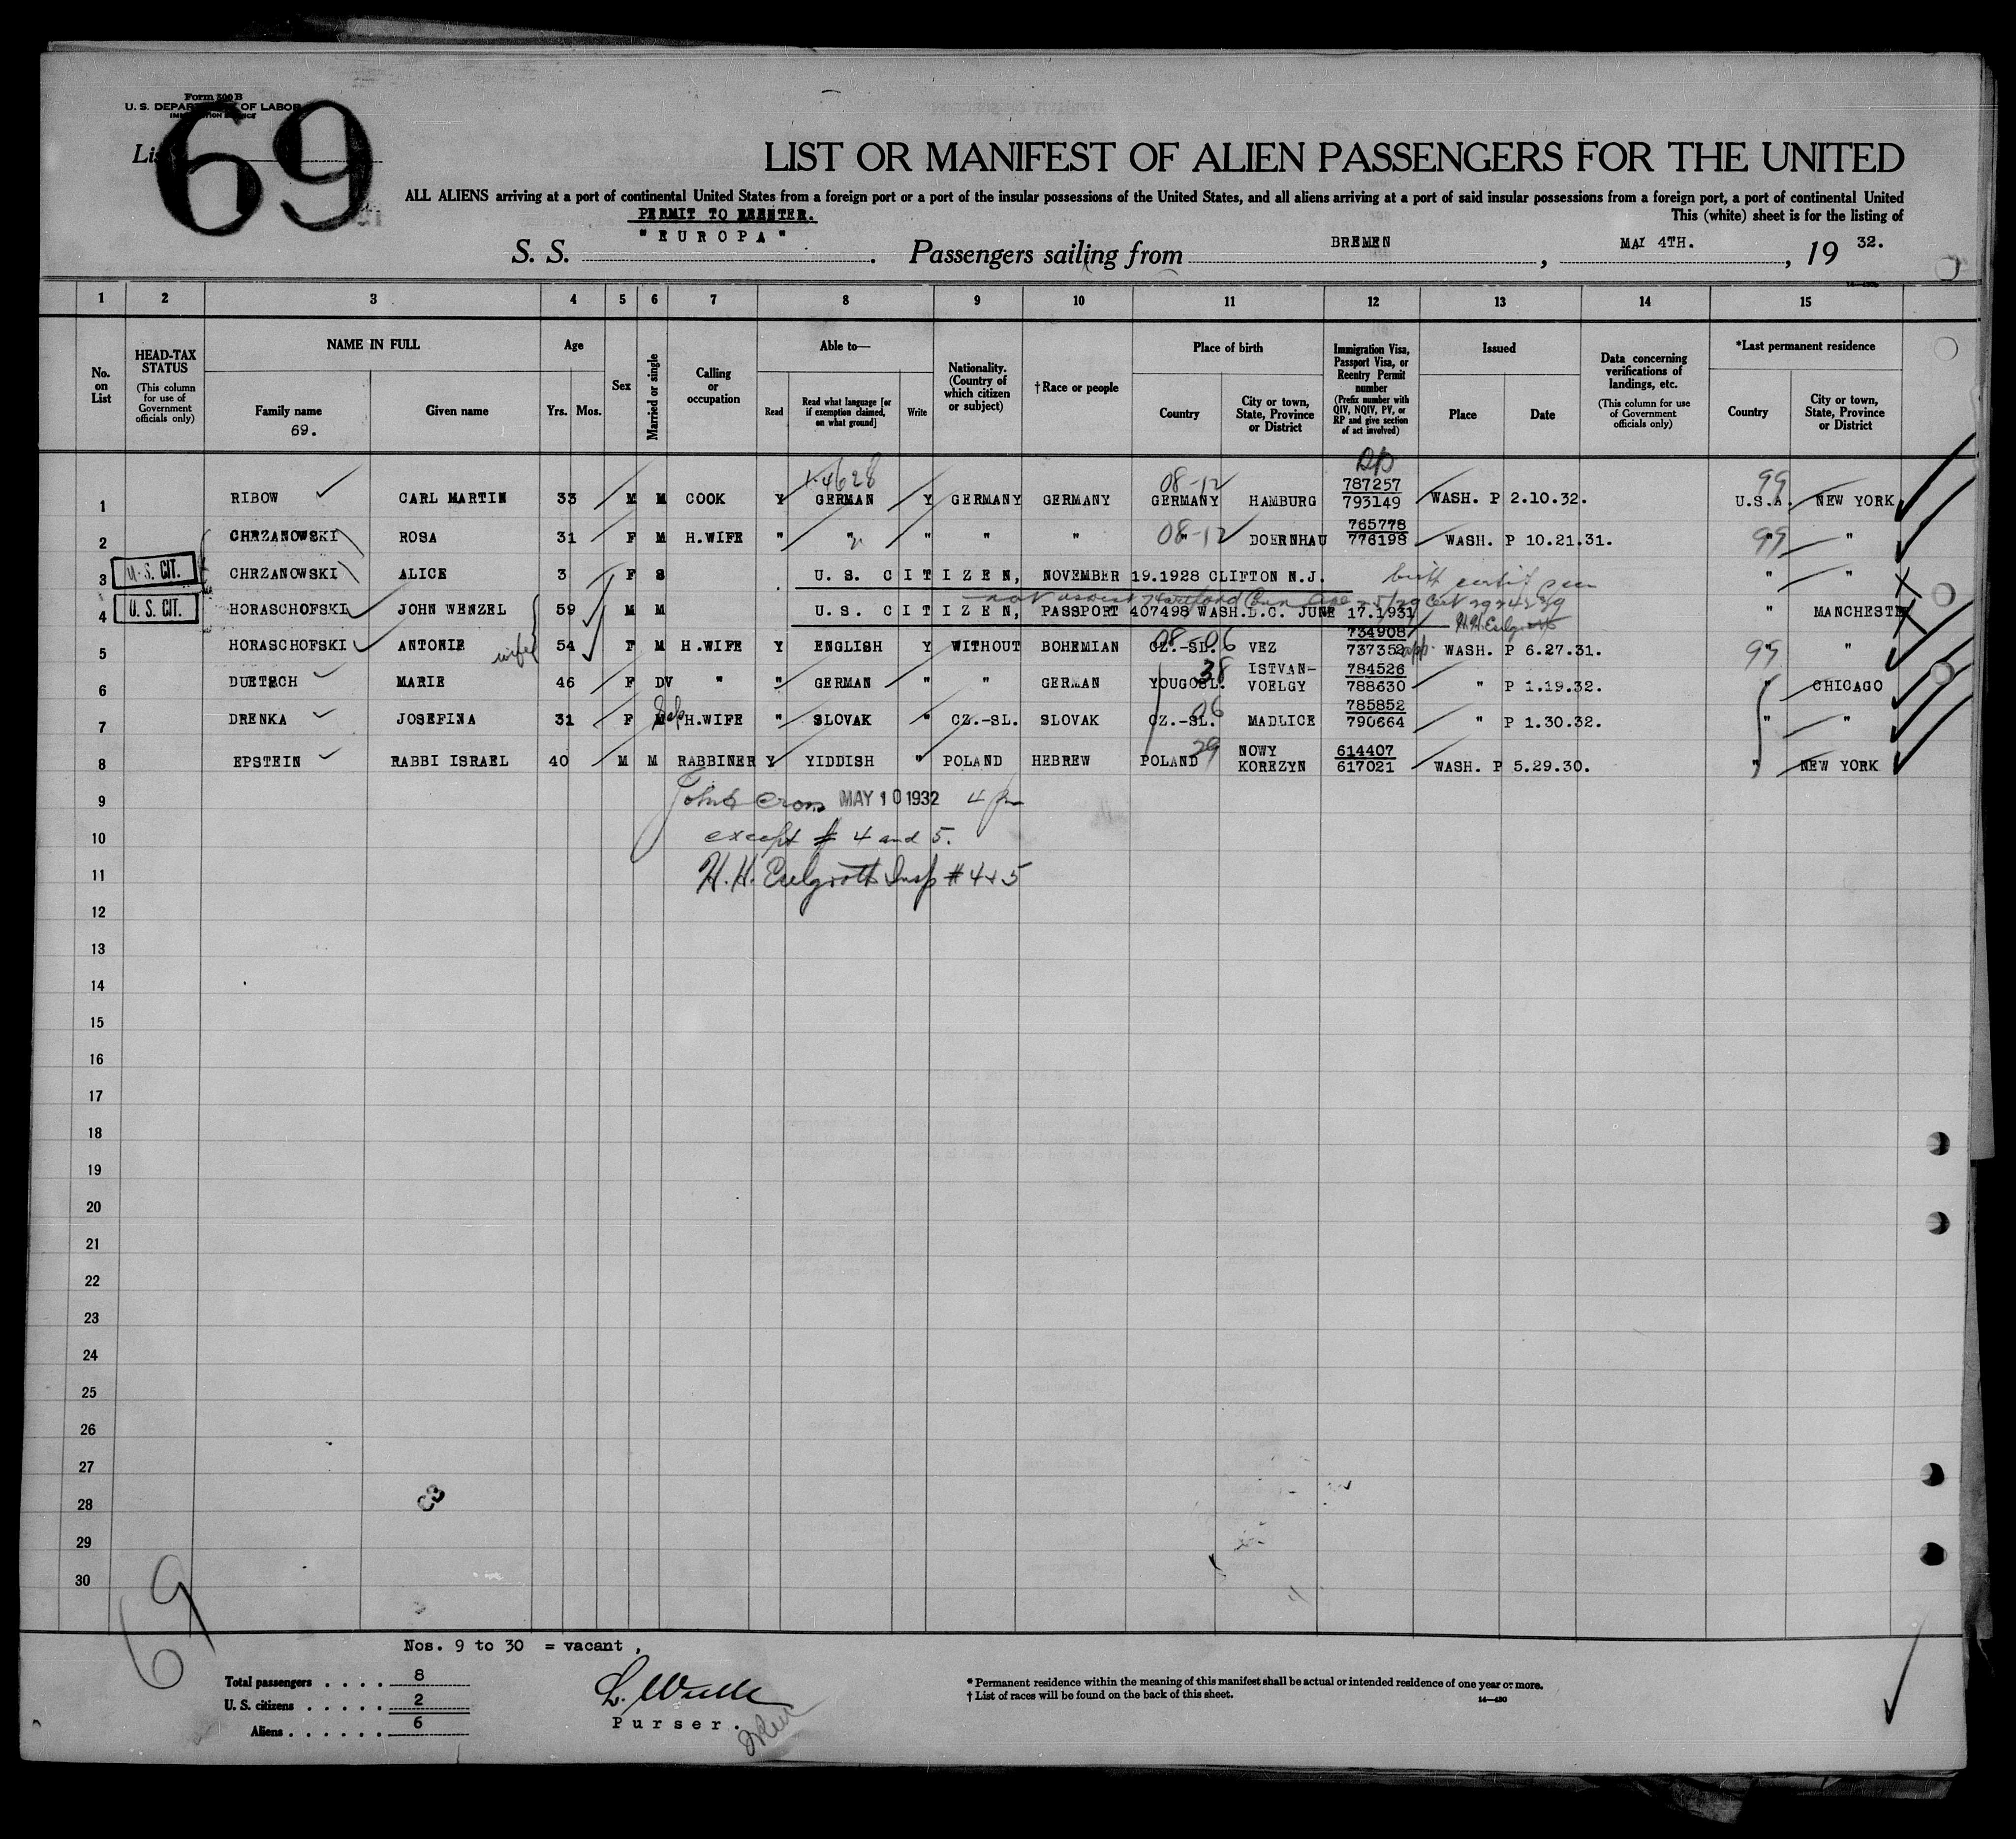 Form 500 B
U. S. DEPARTMENT OF LABOR
IMMIGRATION SERVICE
List
69
LIST OR MANIFEST OF ALIEN PASSENGERS FOR THE UNITED
ALL ALIENS arriving at a port of continental United States from a foreign port or a port of the insular possessions of the United States, and all aliens arriving at a port of said insular possessions from a foreign port, a port of continental United
PERMIT TO REENTER.
This (white) sheet is for the listing of
S. S. "EUROPA". Passengers sailing from BREMEN, MAY 4TH., 19 32.
1 2 3 4 5 6 7 8 9 10 11 12 13 14 15
No. on List
HEAD-TAX STATUS (This column for use of Government officials only)
NAME IN FULL
Family name
69.
Given name
Age
Yrs. Mos.
Sex
Married or single
Calling or occupation
Able to—
Read
Read what language [or if exemption claimed, on what ground]
Write
Nationality. (Country of which citizen or subject)
†Race or people
Place of birth
Country
City or town, State, Province or District
Immigration Visa, Passport Visa, or Reentry Permit number (Prefix number with QIV, NQIV, PV, or RP and give section of act involved)
Issued
Place
Date
Data concerning verifications of landings, etc. (This column for use of Government officials only)
*Last permanent residence
Country
City or town, State, Province or District
1 RIBOW CARL MARTIN 33 M M COOK Y GERMAN Y GERMANY GERMANY 08-12 GERMANY HAMBURG 787257 793149 WASH. P 2.10.32. 99 U.S.A. NEW YORK
2 CHRZANOWSKI ROSA 31 F M H.WIFE " " " " " 08-12 " DOERNHAU 765778 776198 WASH. P 10.21.31. 99 " "
3 U.S. CIT. CHRZANOWSKI ALICE 3 F S U. S. CITIZEN, NOVEMBER 19.1928 CLIFTON N.J. " "
4 U.S. CIT. HORASCHOFSKI JOHN WENZEL 59 M M U. S. CITIZEN, PASSPORT 407498 WASH.D.C. JUNE 17.1931 " MANCHESTE
5 HORASCHOFSKI ANTONIE wife 54 F M H.WIFE Y ENGLISH Y WITHOUT BOHEMIAN 08-06 CZ.-SL. VEZ 734908 737352 WASH. P 6.27.31. 99 " "
6 DUETSCH MARIE 46 F DV " " GERMAN " " GERMAN 38 YOUGOSL. ISTVAN-VOELGY 784526 788630 " P 1.19.32. " CHICAGO
7 DRENKA JOSEFINA 31 F M H.WIFE " SLOVAK " CZ.-SL. SLOVAK 06 CZ.-SL. MADLICE 785852 790664 " P 1.30.32. " "
8 EPSTEIN RABBI ISRAEL 40 M M RABBINER Y YIDDISH " POLAND HEBREW 29 POLAND NOWY KOREZYN 614407 617021 WASH. P 5.29.30. " NEW YORK
9 MAY 10 1932
10 except # 4 and 5.
11 H. H. Insp # 4 + 5
12
13
14
15
16
17
18
19
20
21
22
23
24
25
26
27
28
29
30
69
Nos. 9 to 30 = vacant
Total passengers . . . . 8
U. S. citizens . . . . . 2
Aliens . . . . . . 6
Purser.
* Permanent residence within the meaning of this manifest shall be actual or intended residence of one year or more.
† List of races will be found on the back of this sheet.
14—430